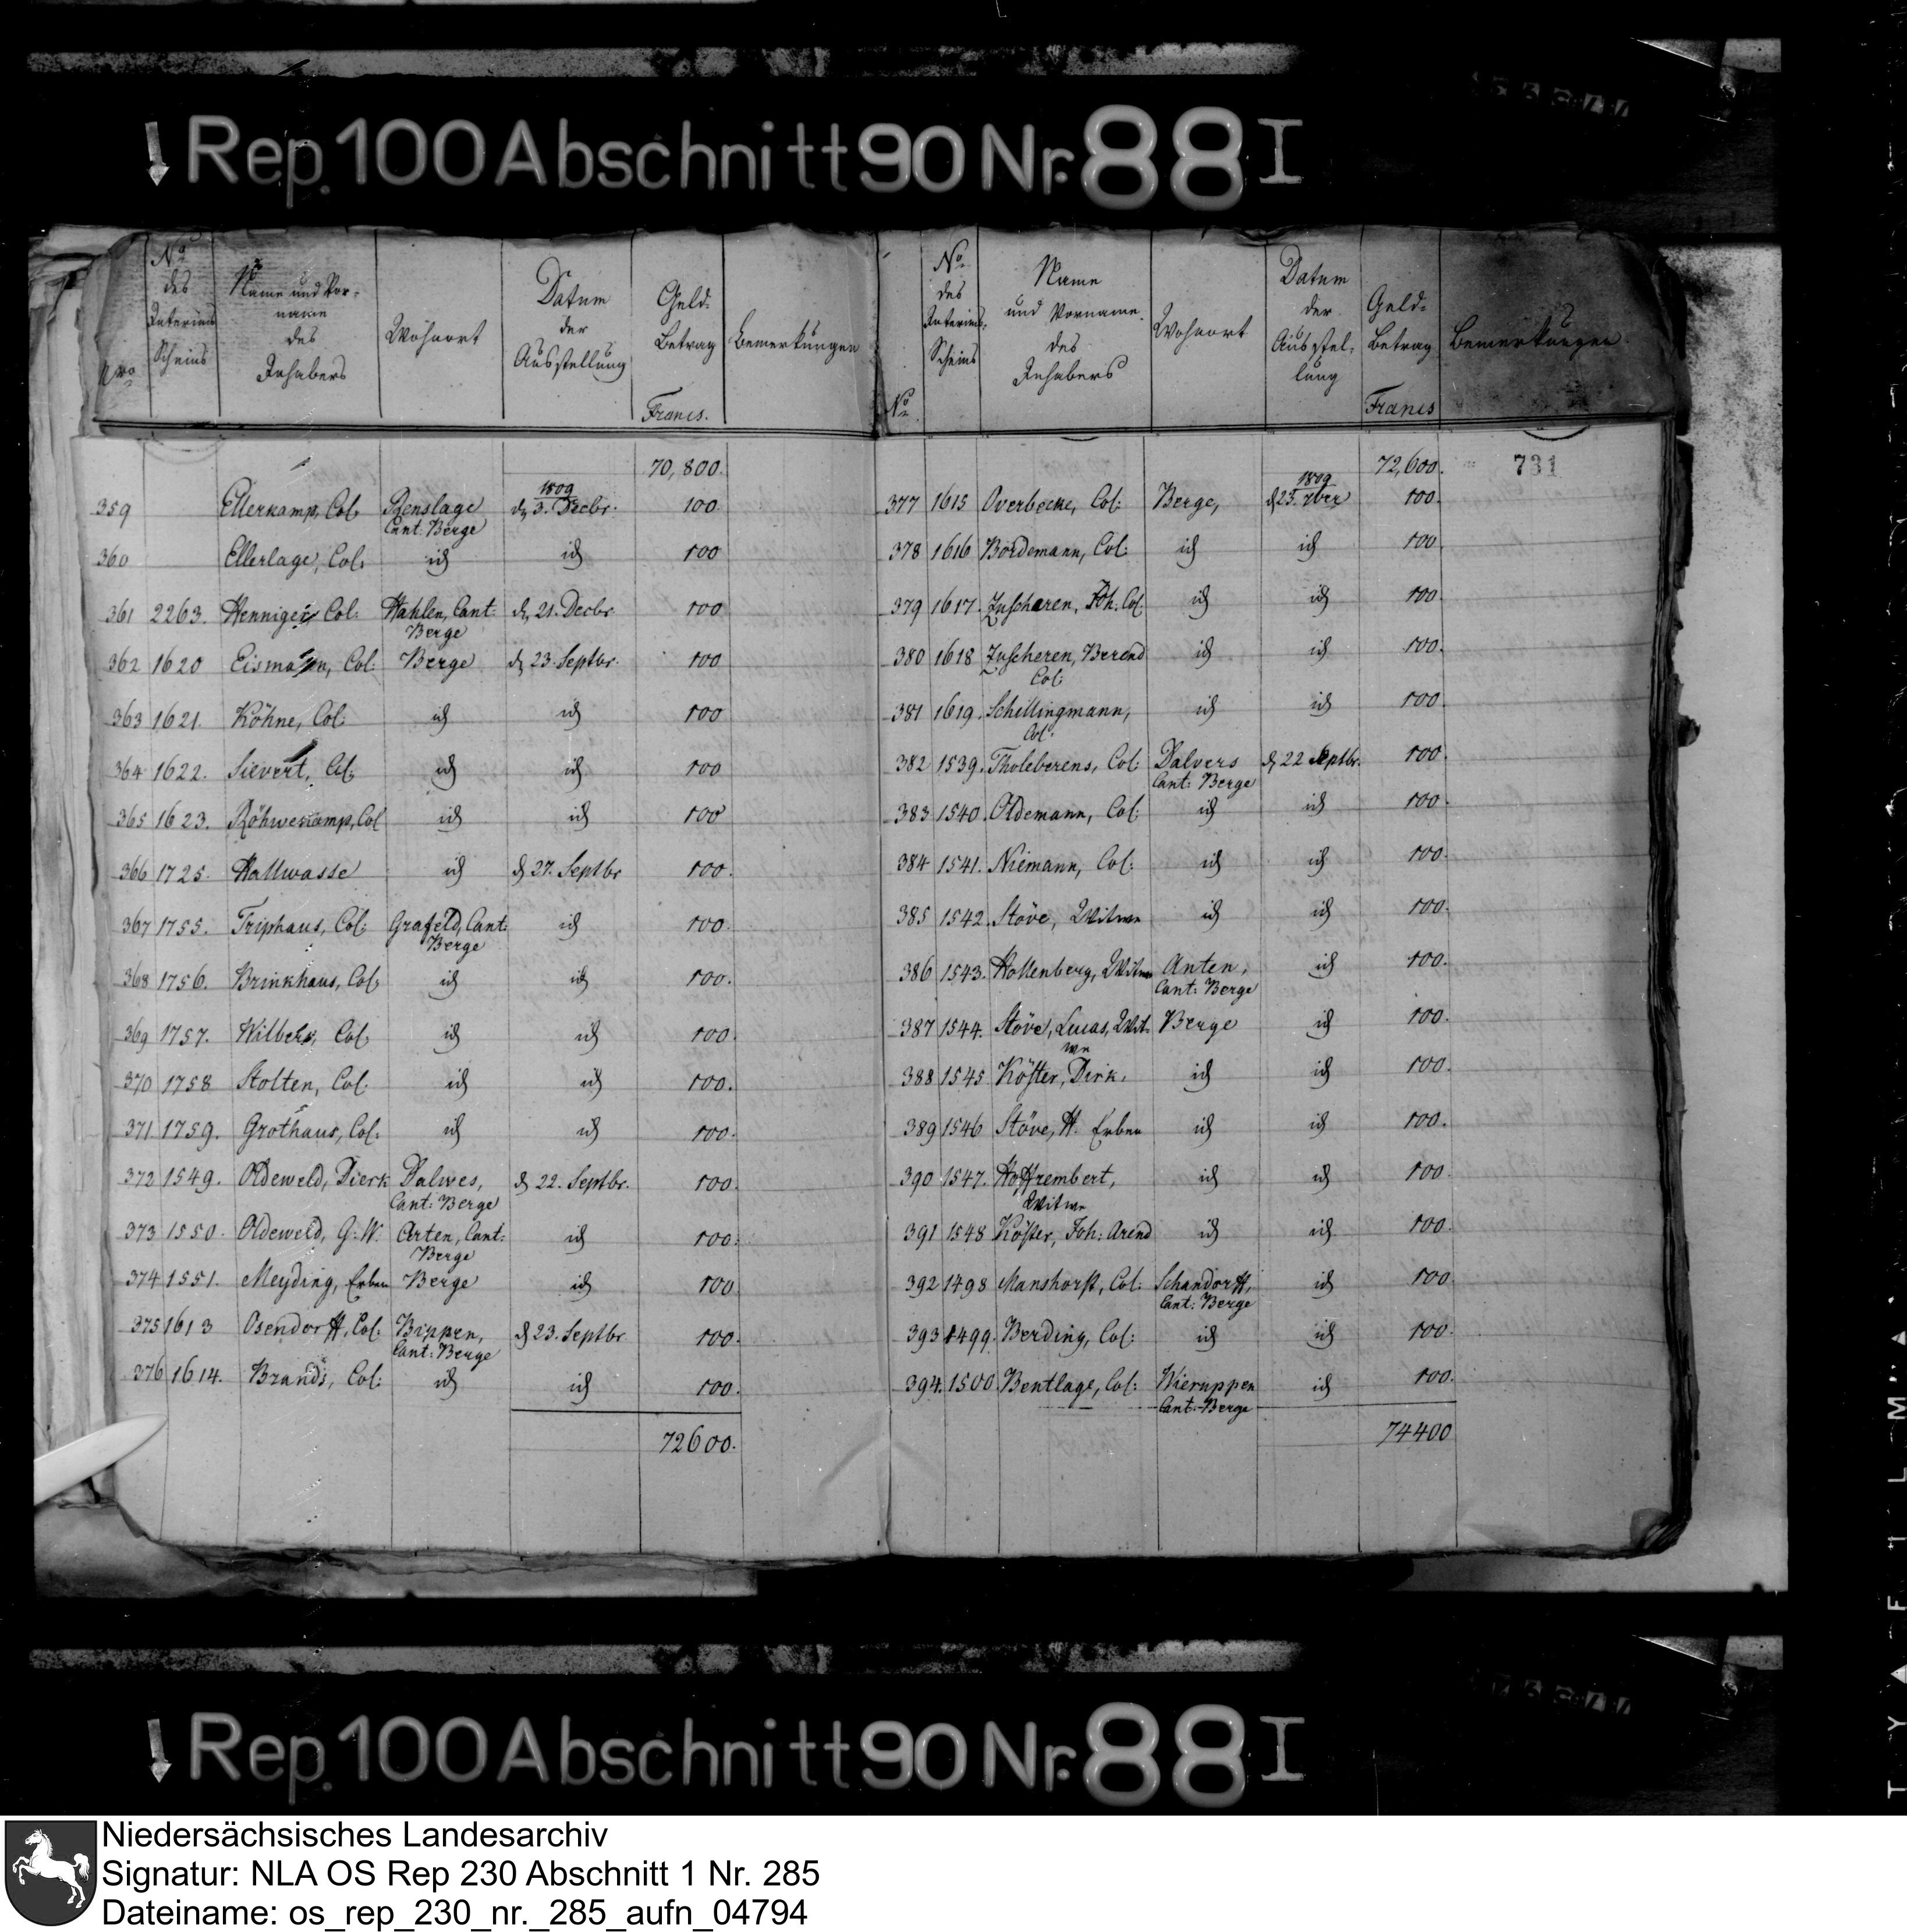 Rep. 100 Abschnitt 90 Nr. 88 I
No des Interims Scheins
Name und Vorname des Inhabers
Wohnort
Datum der Ausstellung
Geld-Betrag
Francs.
Bemerkungen
70,800.
359 Ellerkamp, Col. Renslage Cant: Berge 1809 d. 3. Decbr. 100
360 Ellerlage, Col. id id 100
361 2263. Henniger Col. Wahlen, Cant: Berge d. 21. Decbr. 100
362 1620 Eismann, Col: Berge d 23. Septbr. 100
363 1621. Köhne, Col: id id 100
364 1622. Sievert, Col. id id 100
365 1623. Röhwekamp, Col id id 100
366 1725. Hallwasse id d 27. Septbr 100.
367 1755. Triphaus, Col: Grafeld, Cant: Berge id 100.
368 1756. Brinkhaus, Col: id id 100.
369 1757. Wilbers, Col. id id 100.
370 1758 Stolten, Col. id id 100.
371. 1759. Grothaus, Col. id id 100.
372 1549. Oldeweld, Dierk Dalwes, Cant: Berge d 22. Septbr. 100.
373 1550. Oldeweld, G: W. Arten, Cant: Berge id 100.
374 1551. Meyding, Erben Berge id 100
375 1613 Osendorff, Col: Bippen, Cant: Berge d 23. Septbr 100.
376 1614. Brands, Col: id id 100.
72600.
No
No des Interims-Scheins
Name und Vorname des Inhabers
Wohnort
Datum der Ausstellung
Geld-Betrag
Francs
Bemerkungen
72,600. 731
377 1615 Overbecke, Col: Berge, 1809 d 23. 7ber 100.
378 1616 Bördemann, Col: id id 100.
379 1617. Zuscheren, Joh. Col. id id 100
380 1618 Zuscheren, Berend Col: id id 100.
381 1619. Schillingmann, Col. id id 100.
382 1539. Tholeberens, Col: Dalvers Cant: Berge d 22 Septbr. 100.
383 1540. Oldemann, Col: id id 100.
384 1541. Niemann, Col: id id 100.
385 1542. Stöve, Witwe id id 100.
386 1543. Hollenberg, Witwe Anten, Cant: Berge id 100.
387 1544. Stöve, Lucas, Witwe Berge id 100.
388 1545 Köster, Dirk. id id 100.
389 1546 Stöve, H. Erben id id 100.
390 1547. Hoffrembert, Witwe id id 100.
391 1548 Köster, Joh: Arend id id 100.
392 1498 Manshorst, Col: Schandorff, Cant: Berge id 100.
393 1499. Berding, Col: id id 100.
394. 1500 Bentlage, Col: Wieruppen Cant: Berge id 100.
74400
Rep. 100 Abschnitt 90 Nr. 88 I
Niedersächsisches Landesarchiv
Signatur: NLA OS Rep 230 Abschnitt 1 Nr. 285
Dateiname: os_rep_230_nr._285_aufn_04794